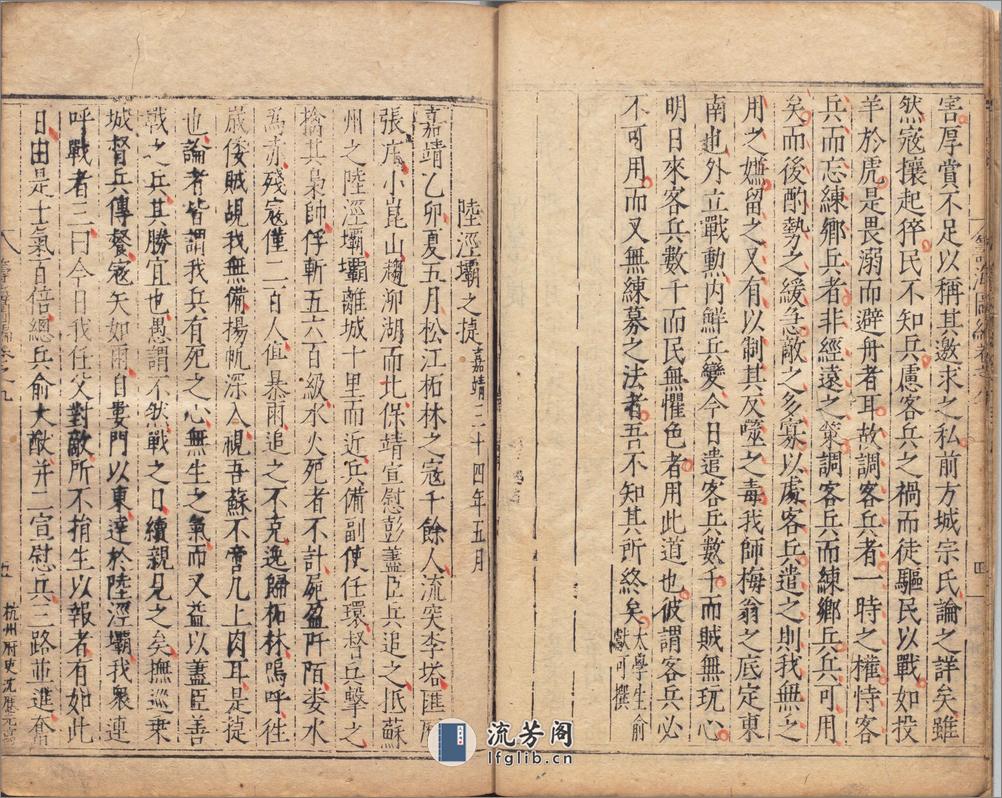 害厚賞不足以稱其邀求之私前方城宗氏論之詳矣雖
然寇攘起猝民不知兵慮客兵之禍而徒驅民以戰如投
羊於虎是畏溺而避舟者耳故調客兵者一時之權恃客
兵而忘練鄉兵者非經遠之策調客兵而練鄉兵兵可用
矣而後酌勢之緩急敵之多寡以處客兵遣之則我無乏
用之嫌留之又有以制其反噬之毒我師梅翁之底定東
南也外立戰勳內鮮兵變今日遣客兵數千而賊無玩心
明日來客兵數千而民無懼色者用此道也彼謂客兵必
不可用而又無練募之法者吾不知其所終矣太學生俞
獻可撰
四
陸涇壩之捷嘉靖三十四年五月
嘉靖乙卯夏五月松江柘林之寇千餘人流突李塔匯
張庄小崑山趨泖湖而北保靖宣慰彭藎臣兵追之抵蘇
州之陸涇壩壩離城十里而近兵備副使任環督兵擊之
擒其梟帥俘斬五六百級水火死者不計屍盈阡陌婁水
為赤殘寇僅二百人值暴雨追之不克逸歸柘林嗚呼往
歲倭賊覘我無備揚帆深入視吾蘇不啻几上肉耳是捷
也論者皆謂我兵有死之心無生之氣而又益以藎臣善
戰之兵其勝宜也愚謂不然戰之日續親見之矣撫巡乗
城督兵傳餐寇矢如雨自婁門以東達於陸涇壩我衆連
呼戰者三曰今日我任父對敵所不捐生以報者有如此
日由是士氣百倍總兵俞大猷并二宣慰兵三路並進奮
五
杭州府吏沈應元寫
流芳阁
lfglib.cn